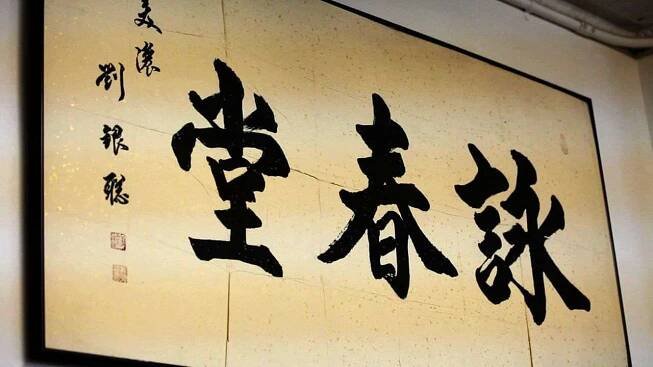 詠春堂
美濃
劉銀聰